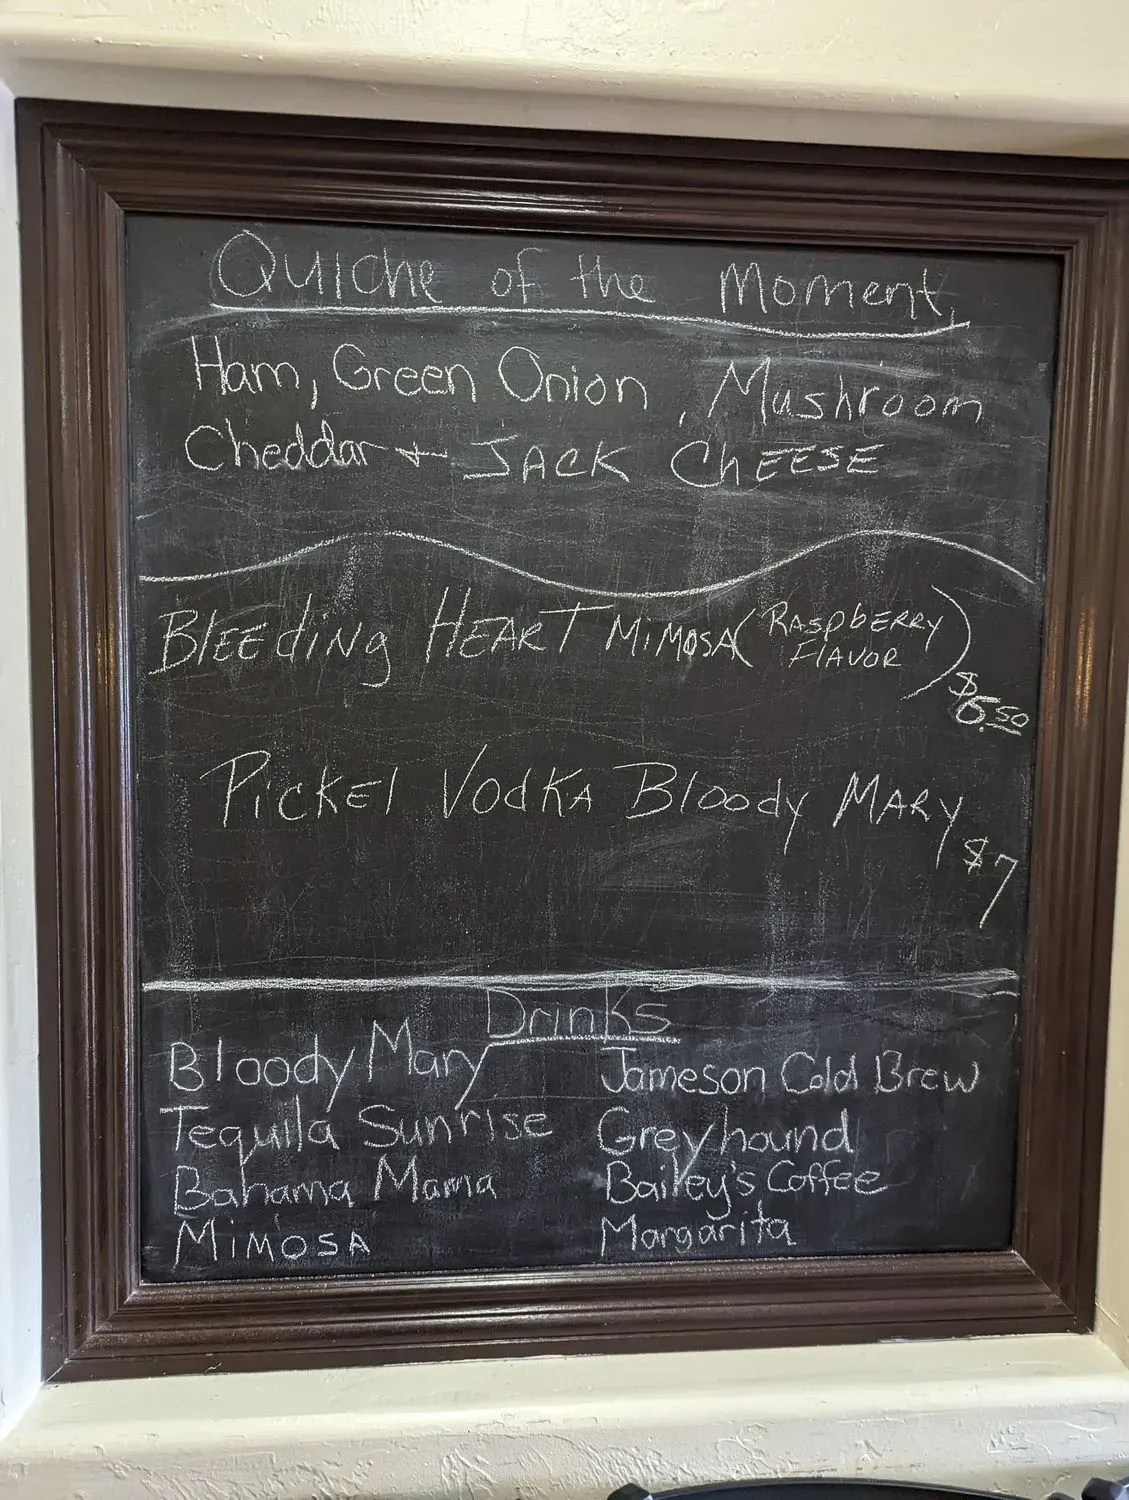 Quiche of the Moment
Ham, Green Onion, Mushroom
Cheddar + Jack Cheese
Bleeding Heart Mimosa (Raspberry Flavor)
$6.50
Pickel Vodka Bloody Mary
$7
Drinks
Bloody Mary
Jameson Cold Brew
Tequila Sunrise
Greyhound
Bahama Mama
Bailey's Coffee
Mimosa
Margarita